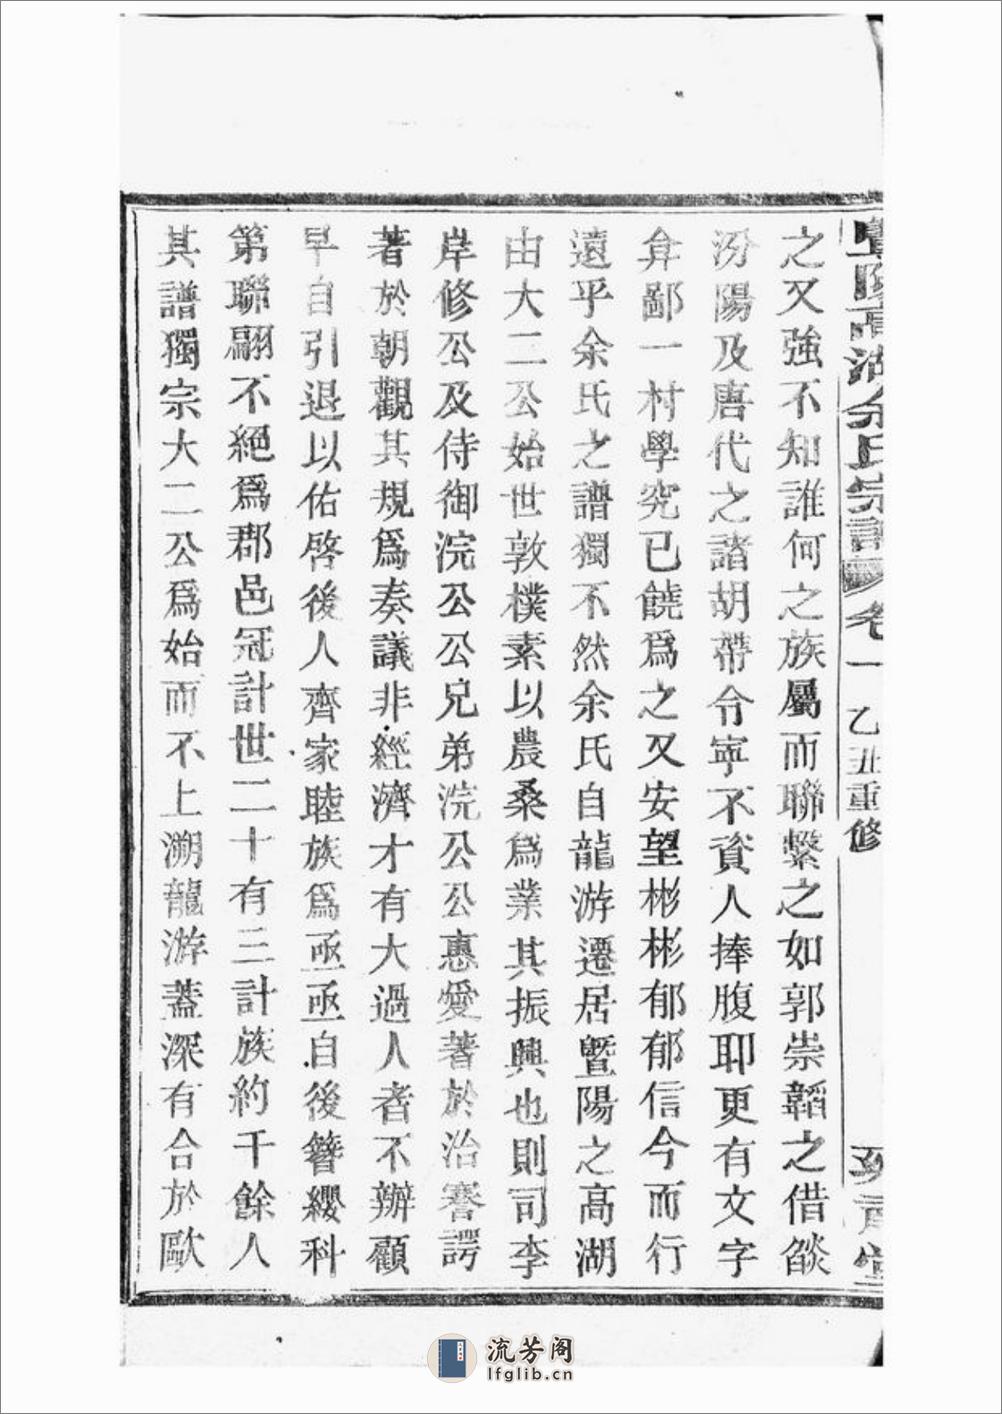 暨陽高湖余氏宗譜 卷一 乙丑重修
之又強不知誰何之族屬而聯繫之如郭崇韜之借燄
汾陽及唐代之諸胡帶令寧不資人捧腹耶更有文字
弇鄙一村學究已饒爲之又安望彬彬郁郁信今而行
遠乎余氏之譜獨不然余氏自龍游遷居暨陽之高湖
由大二公始世敦樸素以農桑爲業其振興也則司李
岸修公及侍御浣公公兄弟浣公公惠愛著於治謇諤
著於朝觀其規爲奏議非經濟才有大過人者不辦顧
早自引退以佑啓後人齊家睦族爲亟亟自後簪纓科
第聯翩不絕爲郡邑冠計世二十有三計族約千餘人
其譜獨宗大二公爲始而不上溯龍游蓋深有合於歐
流芳阁
lfglib.cn